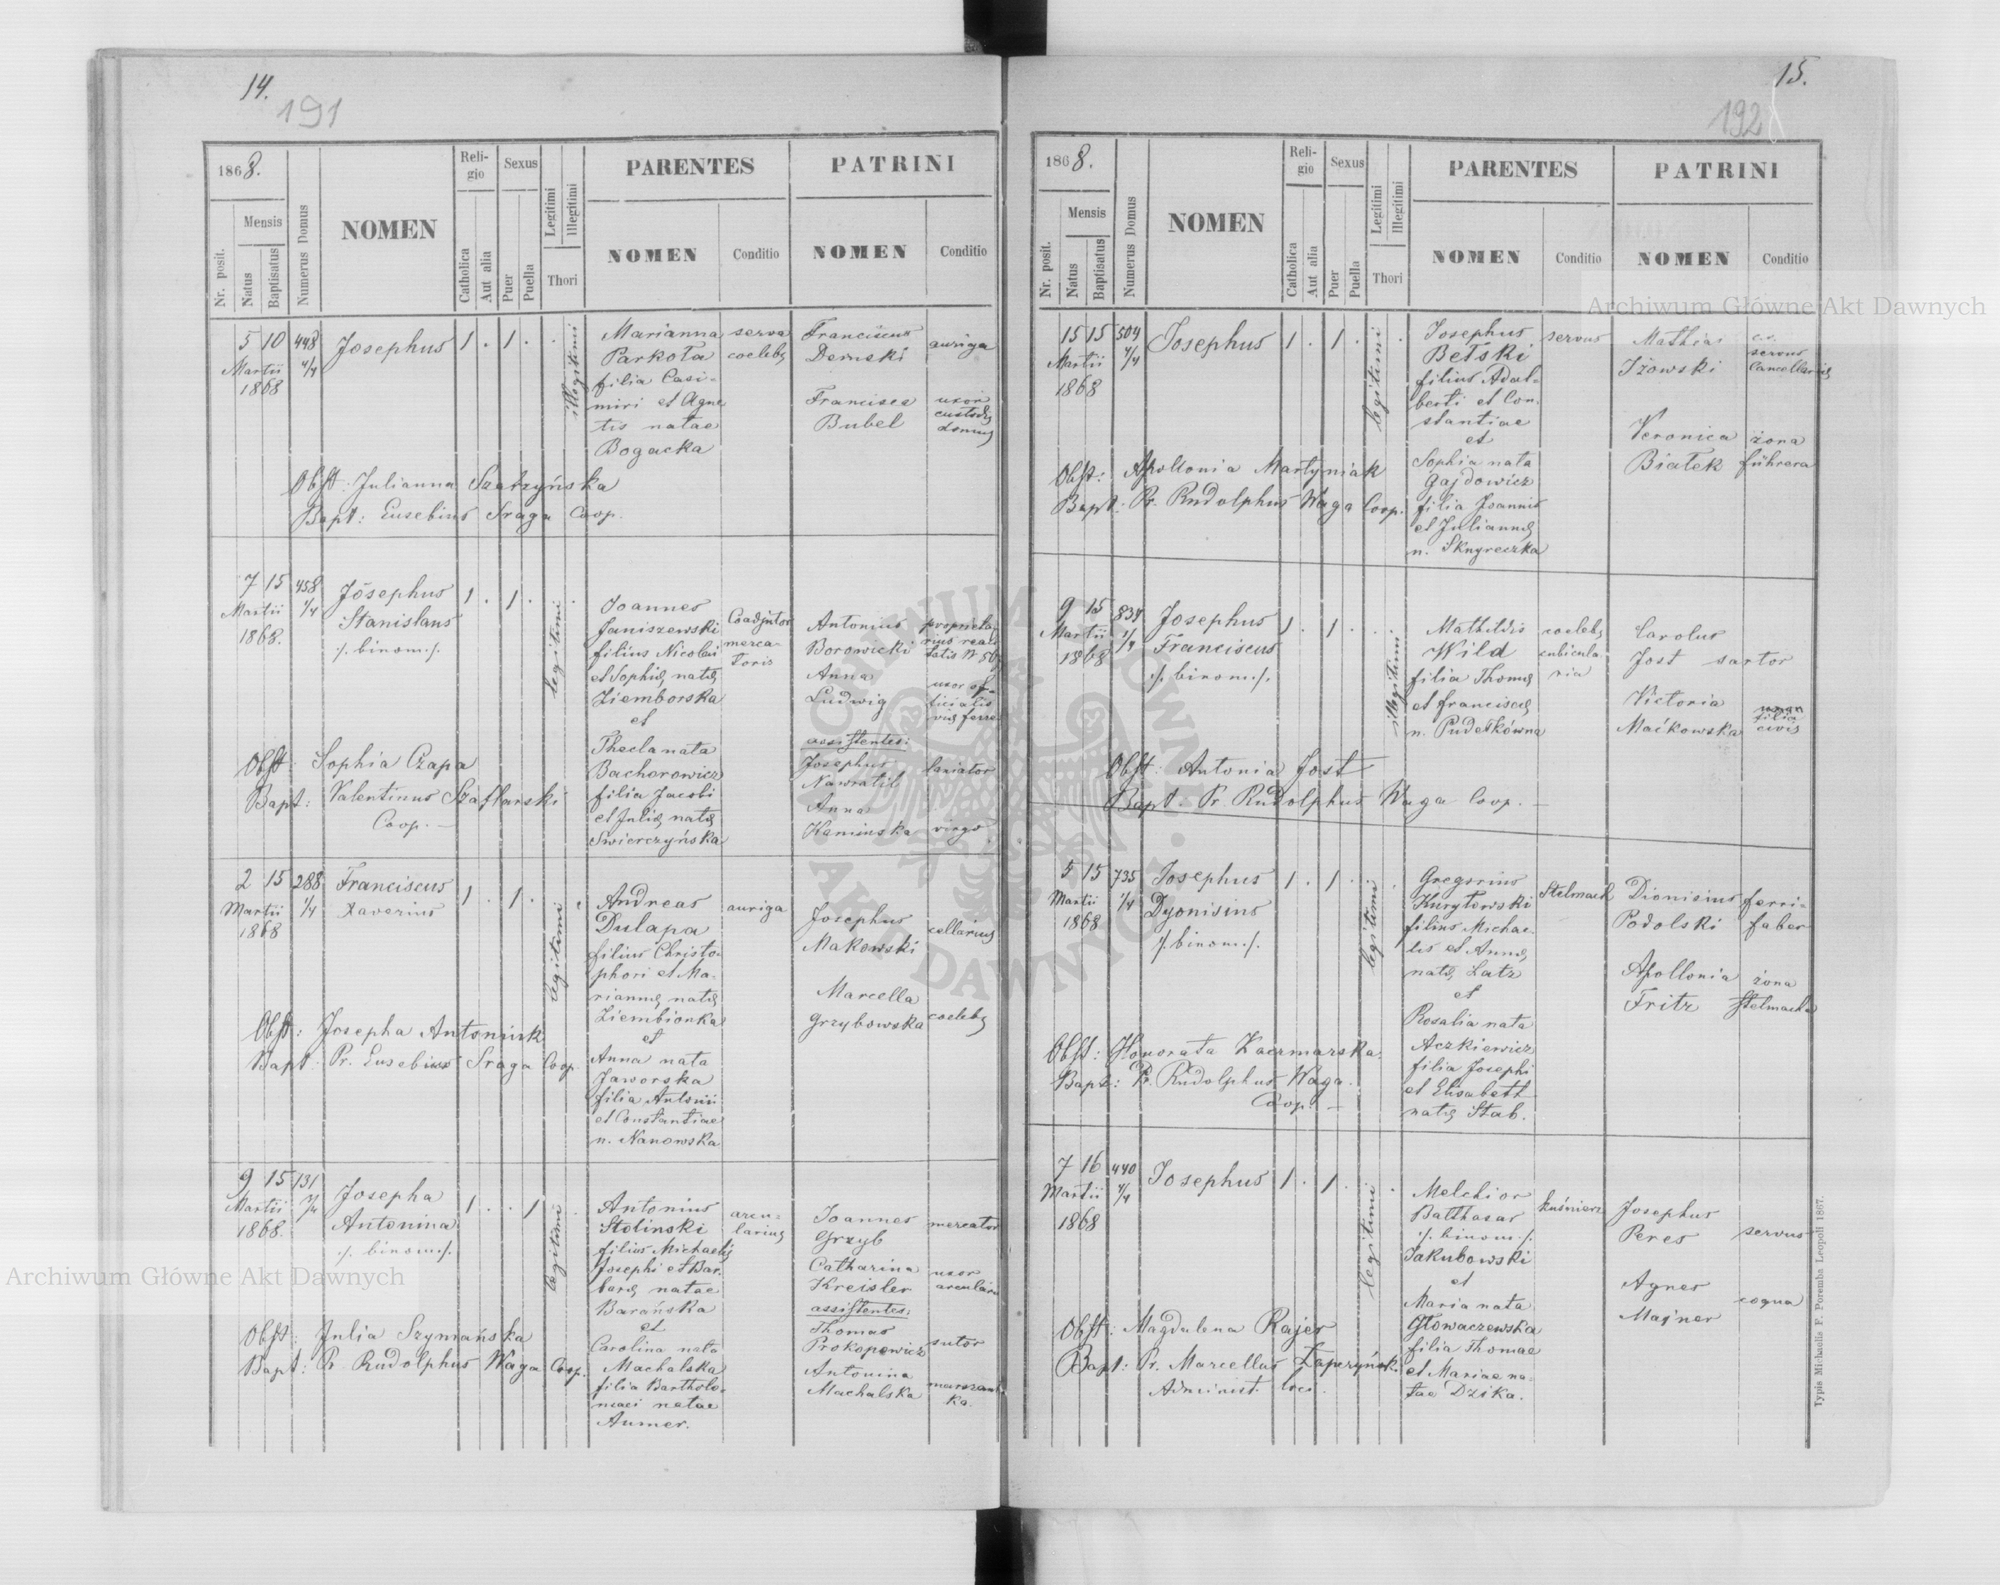 14.
191
1868.
Nr. posit.
Mensis
Natus
Baptisatus
Numerus Domus
NOMEN
Religio
Catholica
Aut alia
Sexus
Puer
Puella
Legitimi
Illegitimi
Thori
PARENTES
NOMEN
Conditio
PATRINI
NOMEN
Conditio
5 10 448
Martii
1868
Josephus
1 . 1 . .
illegitimi
Marianna
Parkoła
filia Casi-
miri et Agne
tis natae
Bogacka
serva
coelebs
Franciscus
Demski
auriga
Francisca
Bubel
uxor
custodis
domus
Obst: Julianna Szatzyńska
Bapt: Eusebius Sraga Coop.
7 15 458
Martii 1/4
1868.
Josephus
Stanislaus
./. binom. /.
1 . 1 .
legitimi
Joannes
Janiszewski
filius Nicolai
et Sophiæ natæ
Ziemborska
et
Thecla nata
Bachorowicz
filia Jacobi
et Juliæ natæ
Swierczyńska
Coadjutor
merca-
toris
Antonius
Borowicki
proprieta-
rius reali
tatis
Anna
Ludwig
uxor of-
ficialis
viæ ferreæ
assistentes:
Josephus
Nawratil
laniator
Anna
Kaminska
virgo
Obst: Sophia Czapa
Bapt: Valentinus Szaflarski
Coop. —
2 15 288
Martii 1/4
1868
Franciscus
Xaverius
1 . 1 .
legitimi
Andreas
Dulapa
filius Christo-
phori et Ma-
riannæ natæ
Ziembionka
et
Anna nata
Jaworska
filia Antonii
et Constantiae
n. Nanowska
auriga
Josephus
Makowski
cellarius
Marcella
Grzybowska
coelebs
Obst: Josepha Antoniuk
Bapt: Pr. Eusebius Sraga Coop.
9 15 131
Martii
1868.
Josepha
Antonina
./. binom. /.
1 . . 1
legitimi
Antonius
Stolinski
filius Michaelis
Josephi et Bar-
baræ natae
Barańska
et
Carolina nata
Machalska
filia Bartholo-
maei natae
Aumer.
arcu-
larius
Joannes
Grzyb
mercator
Catharina
Kreisler
uxor
arcularii
assistentes:
Thomas
Prokopowicz
sutor
Antonina
Machalska
Obst: Julia Szymańska
Bapt: Pr. Rudolphus Waga Coop.
15.
192
1868.
Nr. posit.
Mensis
Natus
Baptisatus
Numerus Domus
NOMEN
Religio
Catholica
Aut alia
Sexus
Puer
Puella
Legitimi
Illegitimi
Thori
PARENTES
NOMEN
Conditio
PATRINI
NOMEN
Conditio
15 15 504
Martii
1868
Josephus
1 . 1 . .
legitimi
Josephus
Betski
filius Adal-
berti et Con-
stantiae
et
Sophia nata
Gajdowicz
filia Joannis
et Juliannæ
n. Sknyreczka
servus
Mathias
Izowski
c.r.
servus
Cancellariæ
Veronica
Białek
żona
führera
Obst: Apollonia Martyniak
Bapt: Pr. Rudolphus Waga Coop.
9 15 834
Martii
1868
Josephus
Franciscus
./. binom. /.
1 . 1 .
illegitimi
Mathildis
Wild
filia Thomæ
et Franciscæ
n. Pudełkówna
coelebs
cubicula-
ria
Carolus
Jost sartor
Victoria
Maćkowska
filia
civis
Obst: Antonia Jost
Bapt. Pr. Rudolphus Waga Coop. —
5 15 735
Martii 1/4
1868
Josephus
Dyonisius
./. binom. /.
1 . 1 .
legitimi
Gregorius
Kuryłowski
filius Michae-
lis et Annæ
natæ Latz
et
Rosalia nata
Aczkiewicz
filia Josephi
et Elisabeth
natæ Stab.
Stelmach
Dionisius
Podolski
ferri-
faber
Apollonia
Fritz
żona
stelmacha
Obst: Honorata Kaczmarska
Bapt: Pr. Rudolphus Waga.
Coop. —
7 16 440
Martii
1868
Josephus
1 . 1 .
legitimi
Melchior
Balthasar
./. binom. /.
Jakubowski
et
Maria nata
Głowaczewska
filia Thomae
et Mariae na-
tae Dzika.
kuśnierz
Josephus
Peres
servus
Agnes
Majner
coqua
Obst: Magdalena Rajer
Bapt: Pr. Marcellus Zapezyński
Administ. loci.
Typis Michaelis F. Poremba Leopoli 1867.
Archiwum Główne Akt Dawnych
Archiwum Główne Akt Dawnych
ARCHIWUM GŁÓWNE · AKT DAWNYCH ·